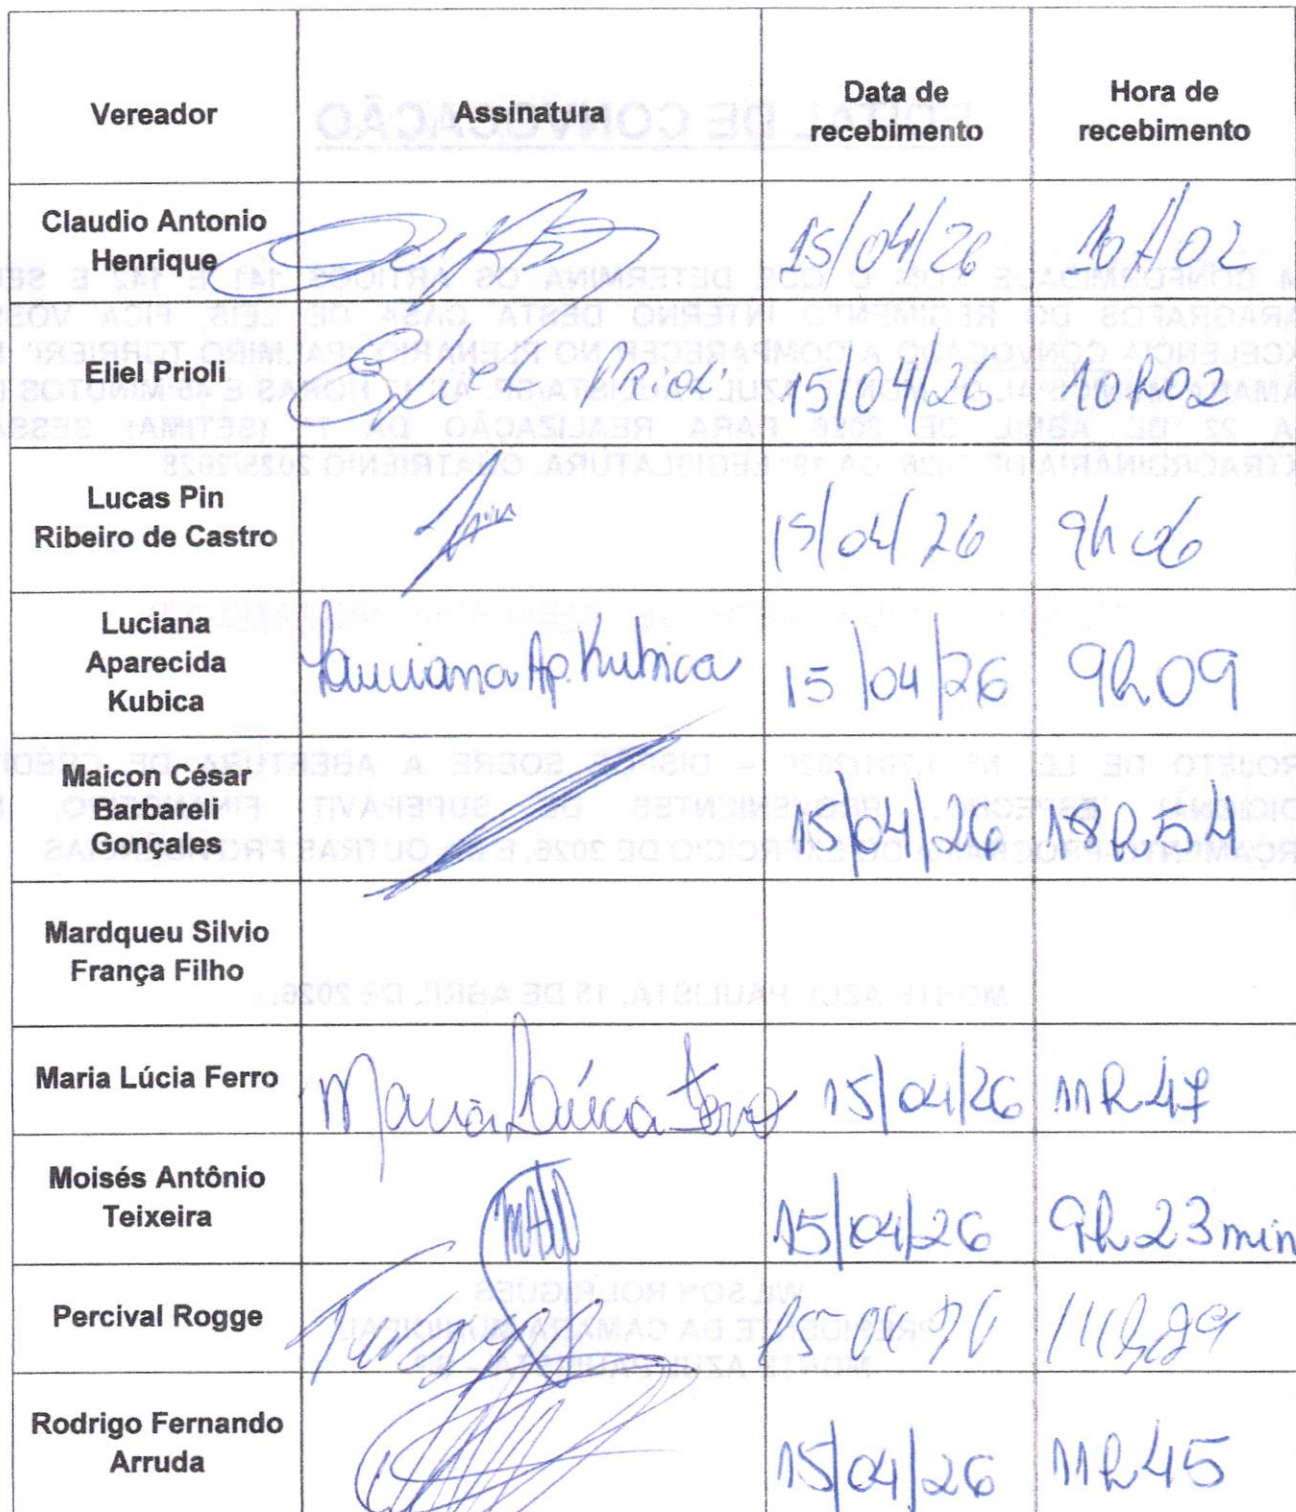 Vereador
Assinatura
Data de
recebimento
Hora de
recebimento
Claudio Antonio
Henrique
15/04/26
10h02
Eliel Prioli
Eliel Prioli
15/04/26
10h02
Lucas Pin
Ribeiro de Castro
15/04/26
9h06
Luciana
Aparecida
Kubica
Luciana Ap. Kubica
15/04/26
9h09
Maicon César
Barbareli
Gonçales
15/04/26
18h54
Mardqueu Silvio
França Filho
Maria Lúcia Ferro
Maria Lúcia Ferro
15/04/26
11h47
Moisés Antônio
Teixeira
15/04/26
9h23min
Percival Rogge
15-04-26
Rodrigo Fernando
Arruda
15/04/26
11h45